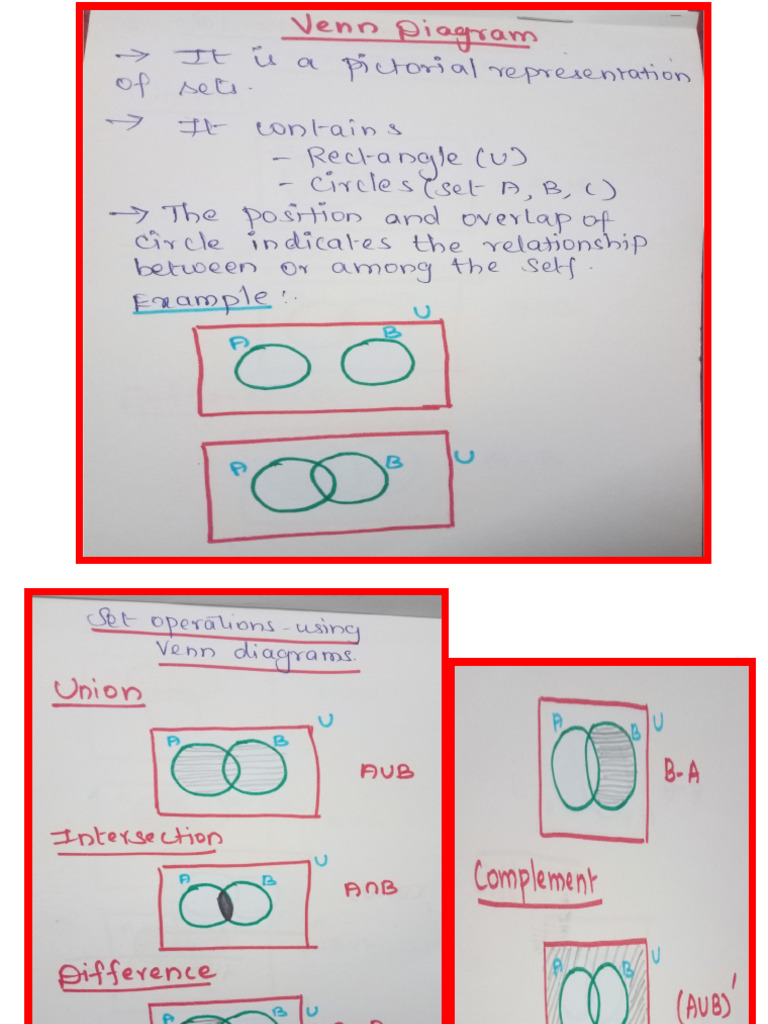 Venn Diagram
→ It is a pictorial representation
of sets.
→ It contains
- Rectangle (U)
- Circles (set A, B, C)
→ The position and overlap of
circle indicates the relationship
between or among the self.
Example :.
U
A B
A B U
Set operations using
Venn diagrams.
Union
U
A B
A∪B
Intersection
U
A B
A∩B
Difference
A B U
A B U
B-A
Complement
A B U
(A∪B)'